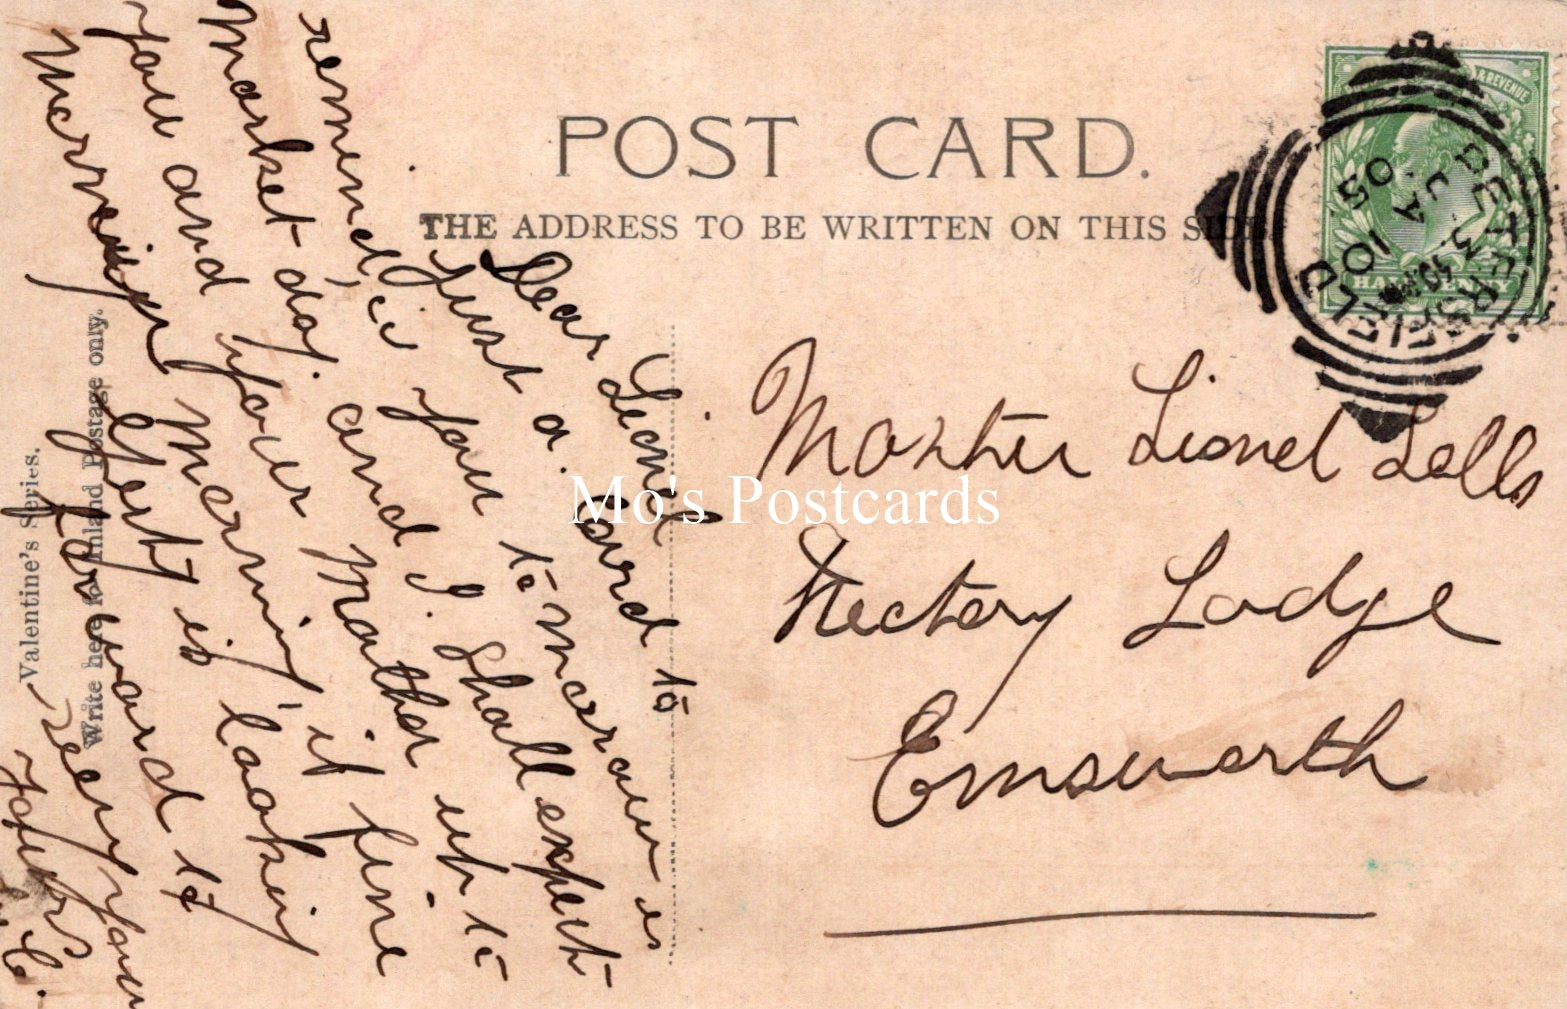 POST CARD.
THE ADDRESS TO BE WRITTEN ON THIS SIDE.
& REVENUE
HALFPENNY
PETERSFIELD
JA 3
05
Valentine's Series.
Write here for Inland Postage only.
Dear Leonel
Just a. Card to
remind, you to morrow is
Market day. and I. Shall expect
you and your Mother up to
Merrow
Morning, if fine
Gert is looking
forward to
seeing you
Yours
Master Lionel Lells
Rectory Lodge
Emsworth
Mo's Postcards